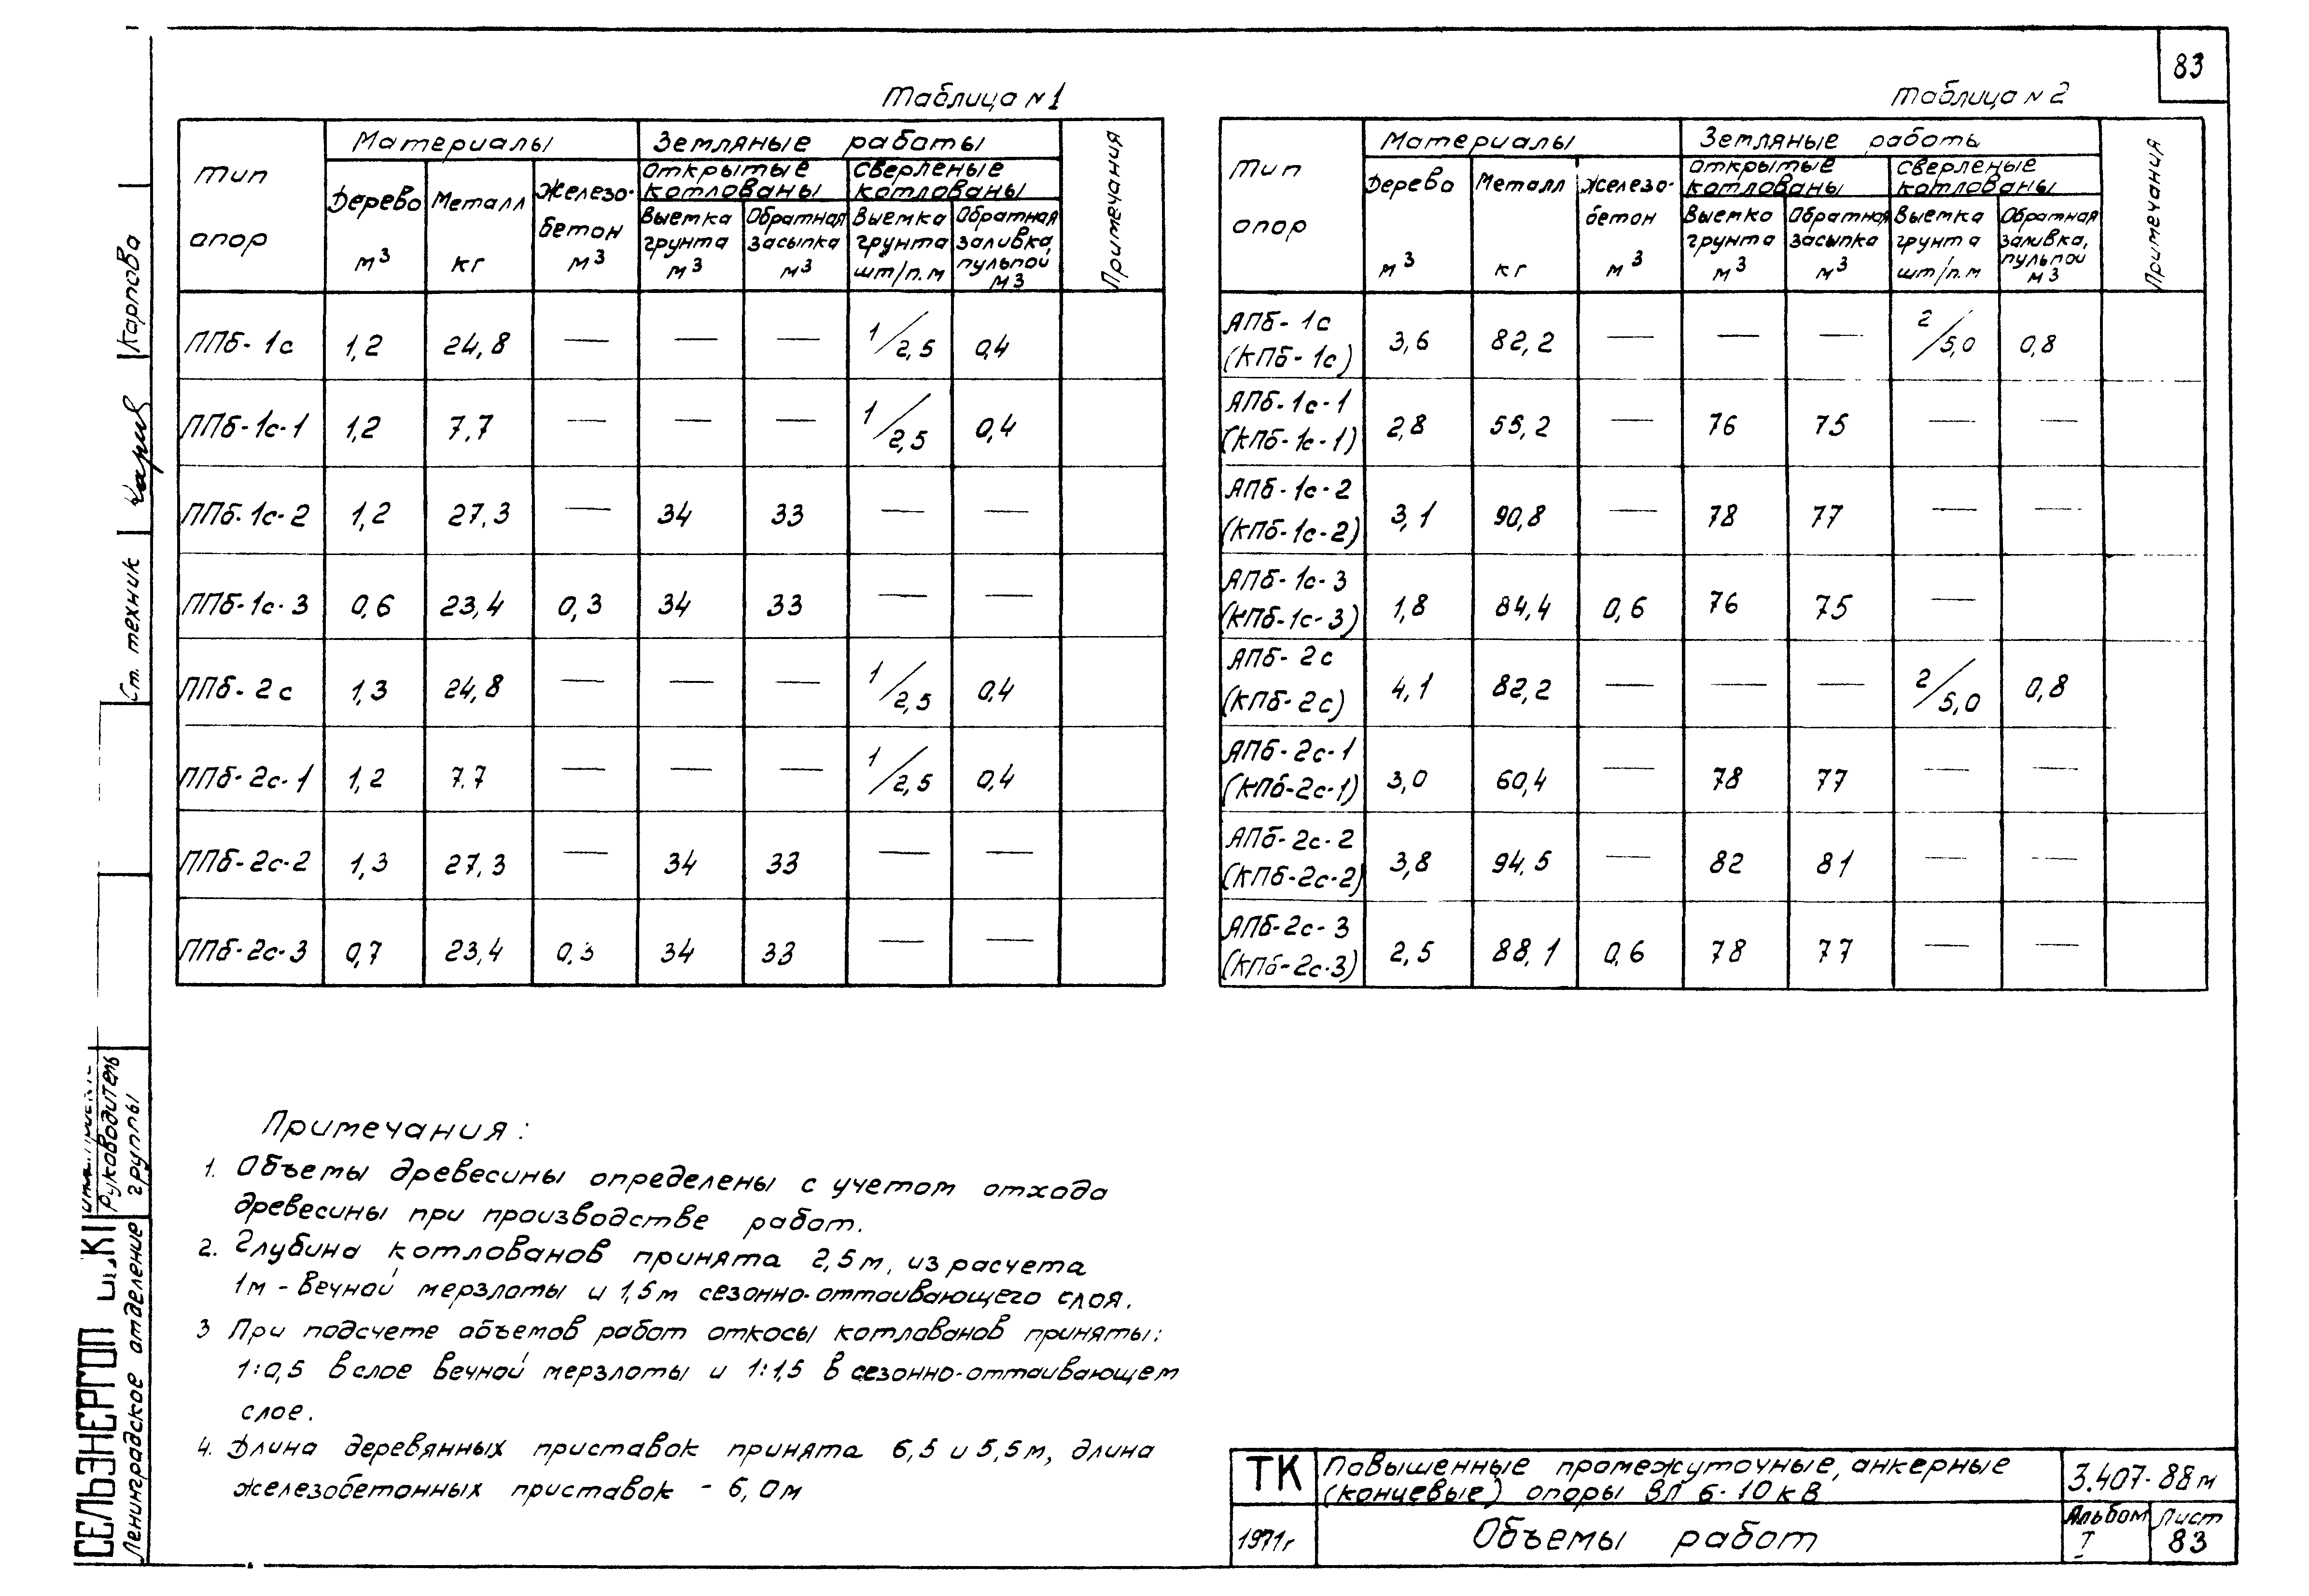 83
Таблица N 1
Тип опор
Материалы
Земляные работы
Примечания
Дерево м3
Металл кг
Железобетон м3
Открытые котлованы
Сверленые котлованы
Выемка грунта м3
Обратная засыпка м3
Выемка грунта шт/п.м
Обратная заливка, пульпой м3
ППб-1с 1,2 24,8 — — — 1/2,5 0,4
ППб-1с-1 1,2 7,7 — — — 1/2,5 0,4
ППб-1с-2 1,2 27,3 — 34 33 — —
ППб-1с-3 0,6 23,4 0,3 34 33 — —
ППб-2с 1,3 24,8 — — — 1/2,5 0,4
ППб-2с-1 1,2 7,7 — — — 1/2,5 0,4
ППб-2с-2 1,3 27,3 — 34 33 — —
ППб-2с-3 0,7 23,4 0,3 34 33 — —
Таблица N 2
Тип опор
Материалы
Земляные работы
Примечания
Дерево м3
Металл кг
Железобетон м3
Открытые котлованы
Сверленые котлованы
Выемка грунта м3
Обратная засыпка м3
Выемка грунта шт/п.м
Обратная заливка, пульпой м3
АПб-1с (КПб-1с) 3,6 82,2 — — — 2/5,0 0,8
АПб-1с-1 (КПб-1с-1) 2,8 55,2 — 76 75 — —
АПб-1с-2 (КПб-1с-2) 3,1 90,8 — 78 77 — —
АПб-1с-3 (КПб-1с-3) 1,8 84,4 0,6 76 75 — —
АПб-2с (КПб-2с) 4,1 82,2 — — — 2/5,0 0,8
АПб-2с-1 (КПб-2с-1) 3,0 60,4 — 78 77 — —
АПб-2с-2 (КПб-2с-2) 3,8 94,5 — 82 81 — —
АПб-2с-3 (КПб-2с-3) 2,5 88,1 0,6 78 77 — —
Примечания:
1. Объемы древесины определены с учетом отхода
древесины при производстве работ.
2. Глубина котлованов принята 2,5м, из расчета
1м - вечной мерзлоты и 1,5м сезонно-оттаивающего слоя.
3 При подсчете объемов работ откосы котлованов приняты:
1:0,5 в слое вечной мерзлоты и 1:1,5 в сезонно-оттаивающем
слое.
4. Длина деревянных приставок принята 6,5 и 5,5м, длина
железобетонных приставок - 6,0м
ТК
Повышенные промежуточные, анкерные
(концевые) опоры ВЛ 6-10кВ
3.407-88м
1971г
Объемы работ
Альбом I
Лист 83
Ст. техник
Карпова
Руководитель группы
Ленинградское отделение